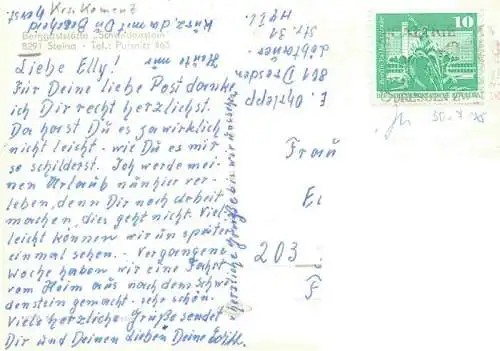 Krs. Kamenz
Berggaststätte „Schwedenstein"
8291 Steina - Tel.: Pulsnitz 465
Liebe Elly!
Für Deine liebe Post danke
ich Dir recht herzlichst.
Da hast Du es ja wirklich
nicht leicht - wie Du es mir
so schilderst. Ich werde mei-
nen Urlaub nun hier ver-
leben, denn Dir noch Arbeit
machen, dies geht nicht. Viel-
leicht können wir uns später
einmal sehen. - Vergangene
Woche haben wir eine Fahrt
vom Heim aus nach dem Schwe-
denstein gemacht - sehr schön.
Viele herzliche Grüße sendet
Dir und Deinen Lieben Deine
herzliche Grüße bis wir uns sehen
Kurz, damit Du Bescheid
hast.
Heute nur
E. Ohrlepp
801 Dresden
Löbtauer-
Str. 31
Frau
203
F
10
DRESDEN
30.7.75